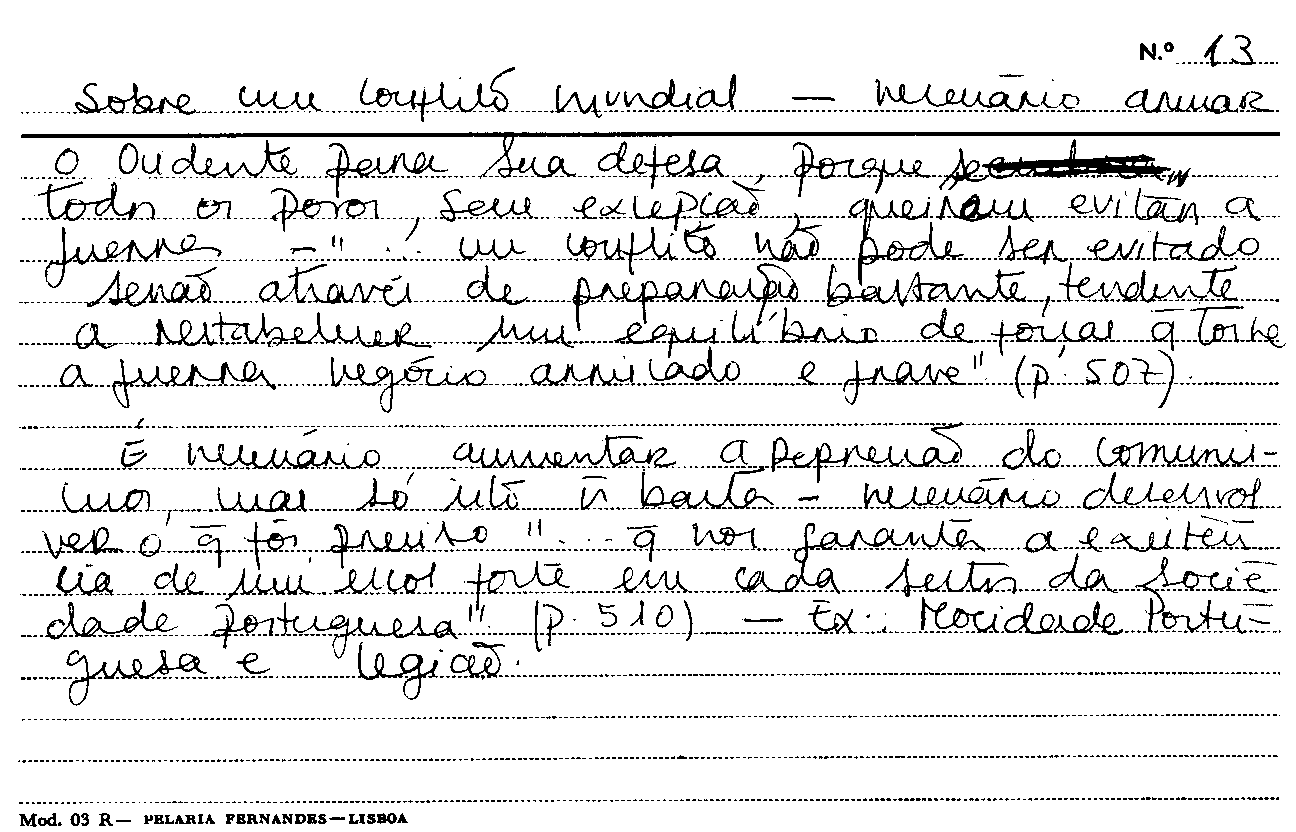 N.º 13
Sobre um conflito mundial — necessário armar
o Ocidente para sua defesa, porque
todos os povos, sem excepção, queiram evitar a
guerra - "... um conflito não pode ser evitado
senão através de preparação bastante, tendente
a restabelecer um equilíbrio de forças q̄ torne
a guerra negócio arriscado e grave" (p. 507).
É necessário aumentar a repressão do comunis-
mo, mas só isto ñ basta - necessário desenvol
ver o q̄ fôr preciso "... q̄ nos garanta a existên
cia de um escol forte em cada sector da socie
dade portuguesa" (p. 510) — Ex.: Mocidade Portu-
guesa e Legião.
Mod. 03 R— PELARIA FERNANDES—LISBOA